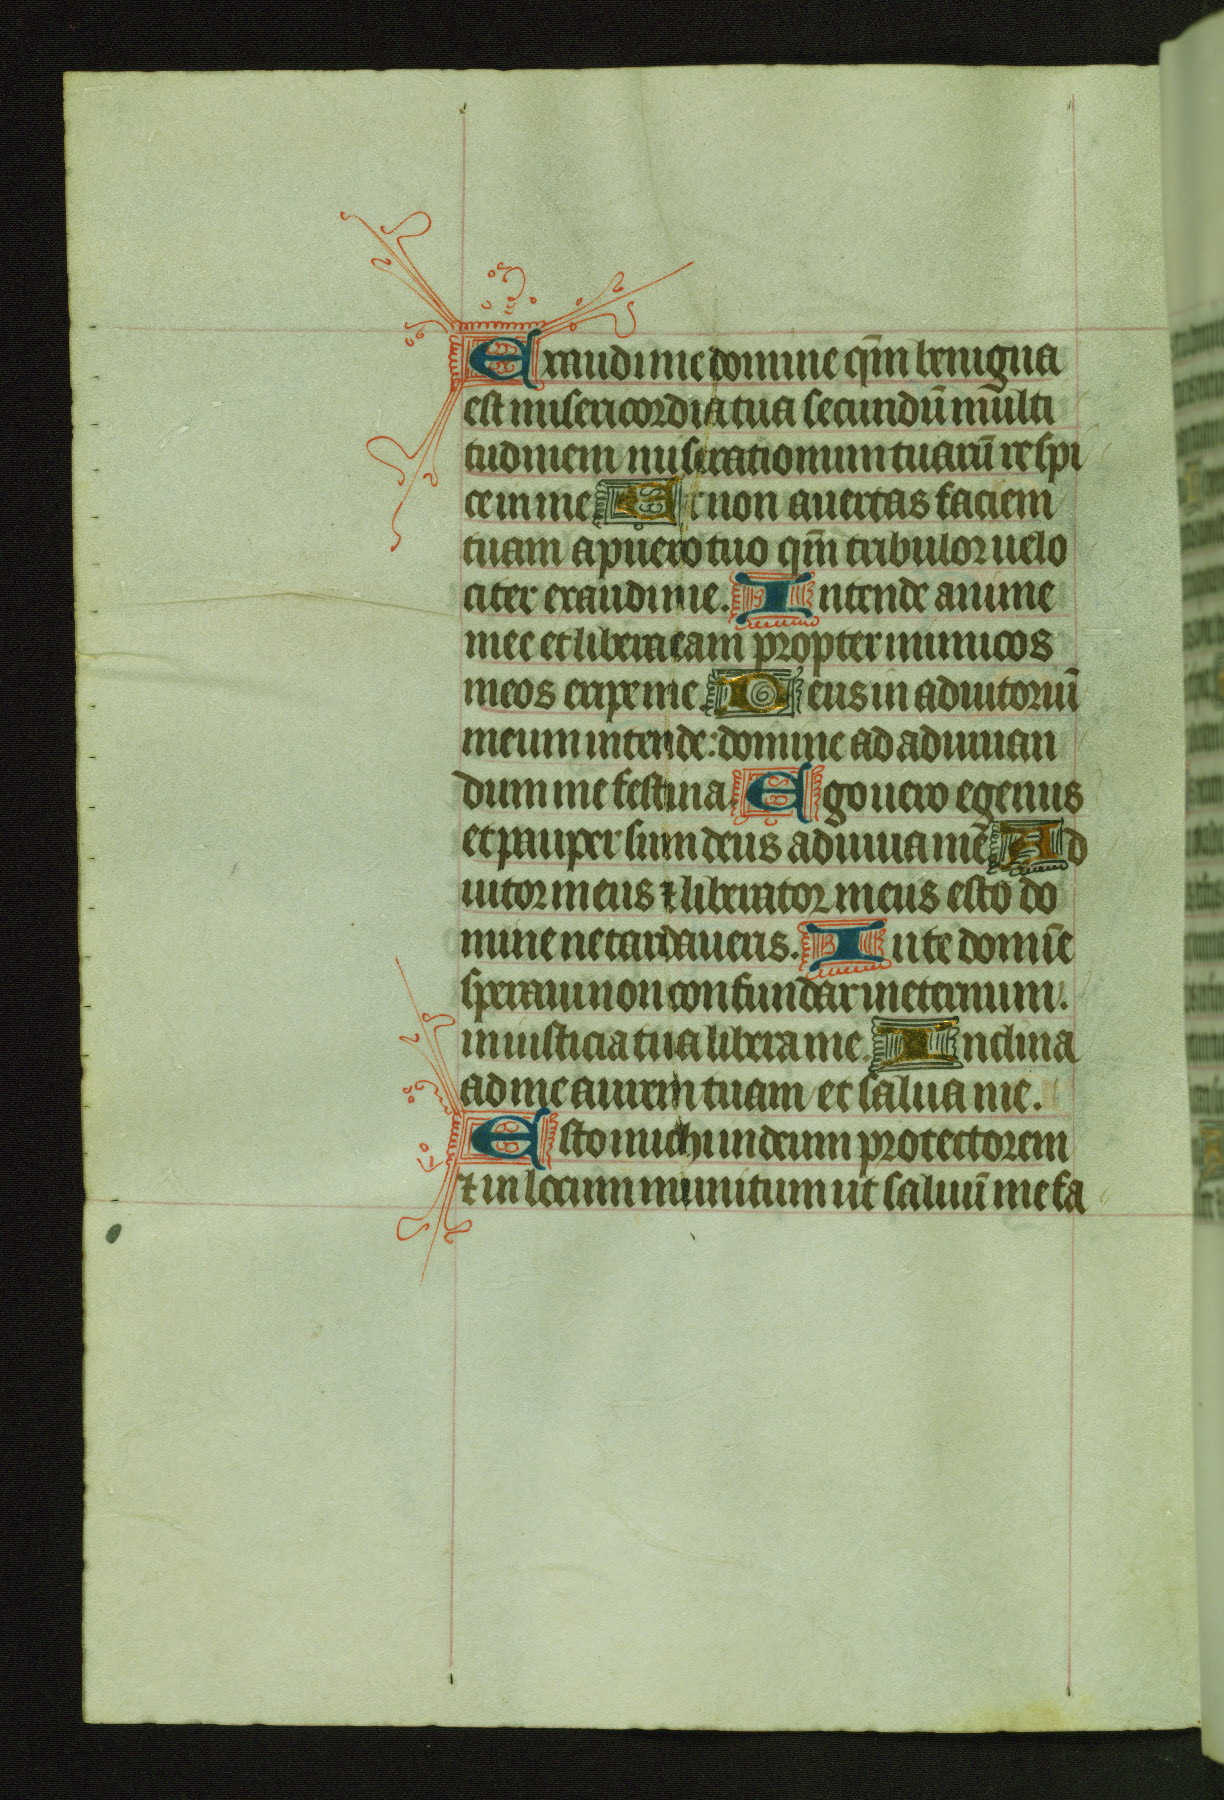 Exaudi me domine qm̄ benigna
est misericordia tua secundū multi
tudinem miserationum tuarū respi
ce in me Et non avertas faciem
tuam a puero tuo qm̄ tribulor velo
citer exaudi me. Intende anime
mee et libera eam propter inimicos
meos eripe me. Deus in adiutoriū
meum intende: domine ad adiuuan
dum me festina. Ego uero egenus
et pauper sum deus adiuua me Ad
iutor meus ⁊ liberator meus esto do
mine ne tardaueris. In te domīe
speraui non confundar in eternum.
in iusticia tua libera me. Inclina
ad me aurem tuam et salua me.
Esto michi in deum protectorem
⁊ in locum munitum ut saluū me fa